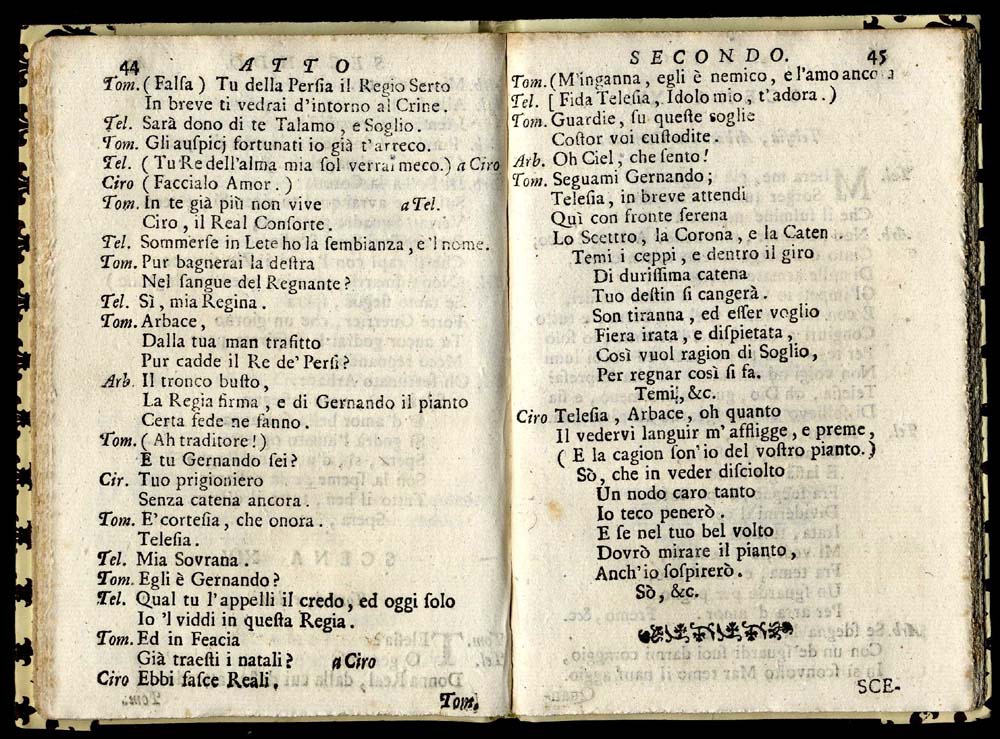 44 ATTO
Tom. (Falſa) Tu della Perſia il Regio Serto
In breve ti vedrai d'intorno al Crine.
Tel. Sarà dono di te Talamo, e Soglio.
Tom. Gli auſpicj fortunati io già t'arreco.
Tel. (Tu Re dell'alma mia ſol verrai meco.) a Ciro
Ciro (Faccialo Amor.)
Tom. In te già più non vive a Tel.
Ciro, il Real Conſorte.
Tel. Sommerſe in Lete ho la ſembianza, e'l nome.
Tom. Pur bagnerai la deſtra
Nel ſangue del Regnante?
Tel. Sì, mia Regina.
Tom. Arbace,
Dalla tua man trafitto
Pur cadde il Re de' Perſi?
Arb. Il tronco buſto,
La Regia firma, e di Gernando il pianto
Certa fede ne fanno.
Tom. (Ah traditore!)
E tu Gernando ſei?
Cir. Tuo prigioniero
Senza catena ancora.
Tom. E' corteſia, che onora.
Teleſia.
Tel. Mia Sovrana.
Tom. Egli è Gernando?
Tel. Qual tu l'appelli il credo, ed oggi ſolo
Io 'l viddi in queſta Regia.
Tom. Ed in Feacia
Già traeſti i natali? a Ciro
Ciro Ebbi faſce Reali.
Tom.
SECONDO. 45
Tom. (M'inganna, egli è nemico, e l'amo ancora
Tel. [Fida Teleſia, Idolo mio, t'adora.)
Tom. Guardie, ſu queſte ſoglie
Coſtor voi cuſtodite.
Arb. Oh Ciel, che ſento!
Tom. Seguami Gernando;
Teleſia, in breve attendi
Quì con fronte ſerena
Lo Scettro, la Corona, e la Caten
Temi i ceppi, e dentro il giro
Di duriſſima catena
Tuo deſtin ſi cangerà.
Son tiranna, ed eſſer voglio
Fiera irata, e diſpietata,
Così vuol ragion di Soglio,
Per regnar così ſi fa.
Temi, &c.
Ciro Teleſia, Arbace, oh quanto
Il vedervi languir m'affligge, e preme,
(E la cagion ſon'io del voſtro pianto.)
Sò, che in veder diſciolto
Un nodo caro tanto
Io teco penerò.
E ſe nel tuo bel volto
Dovrò mirare il pianto,
Anch'io ſoſpirerò.
Sò, &c.
SCE-